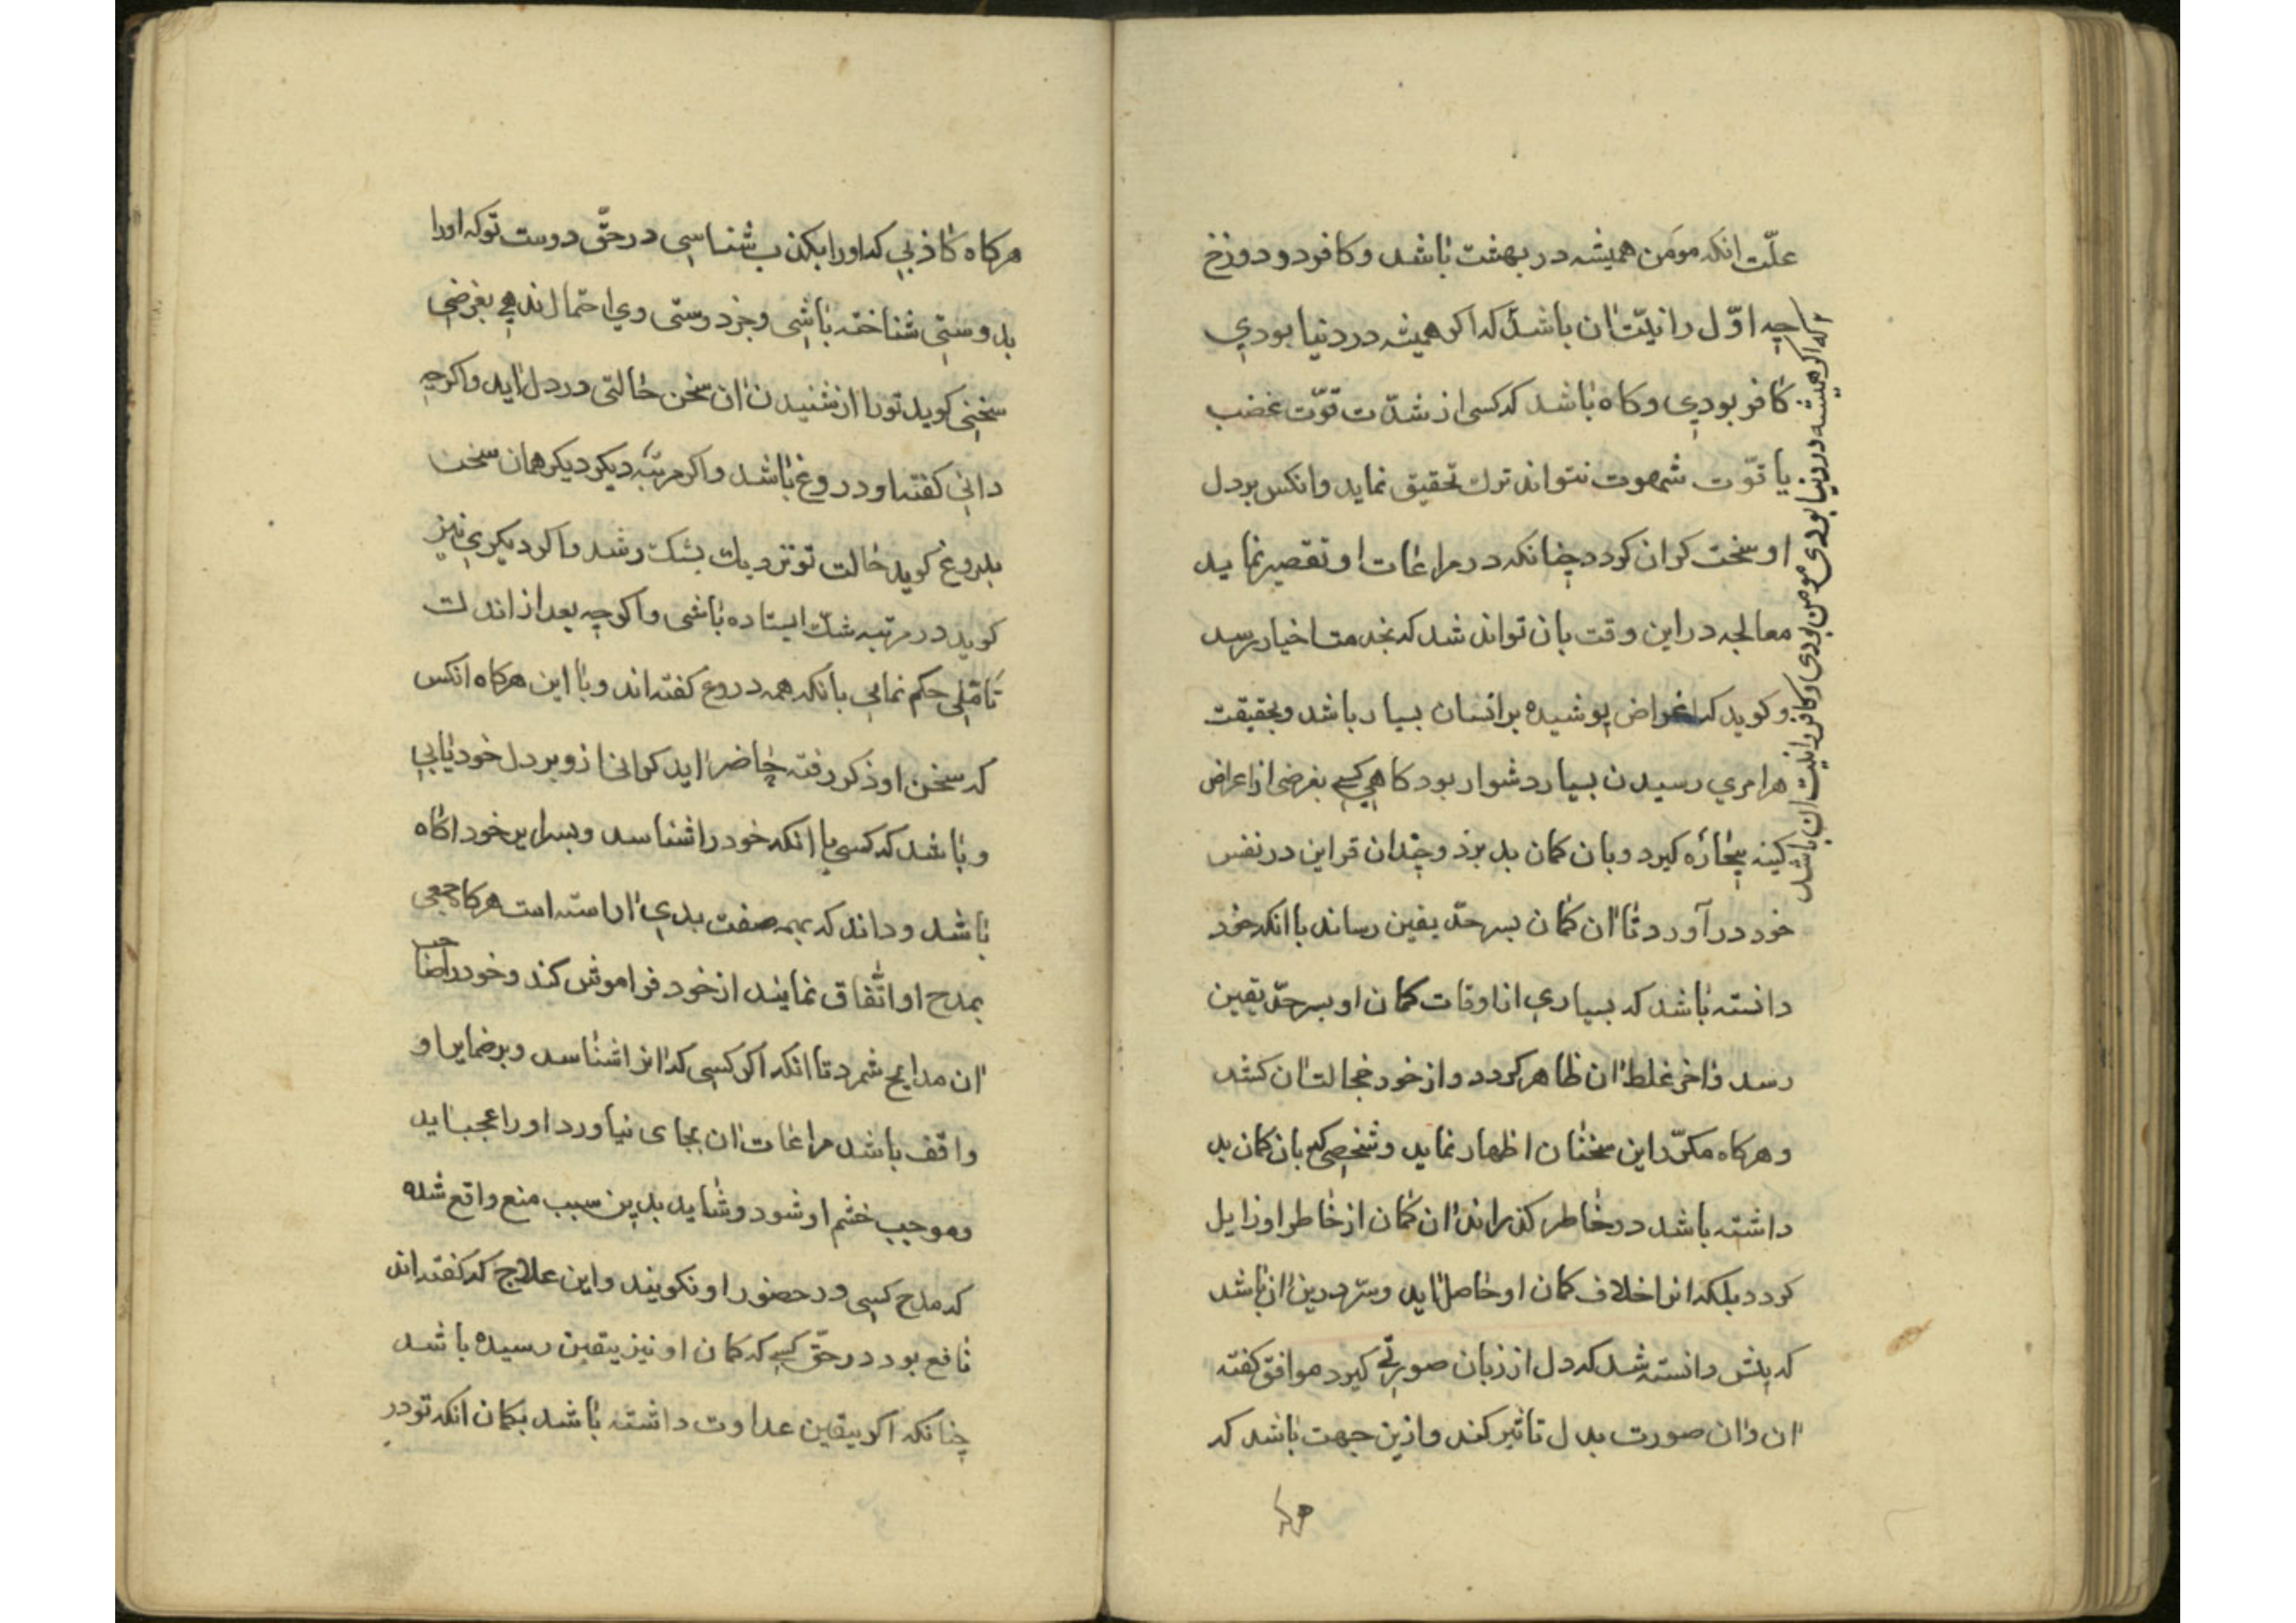 علّت انکه مومن همیشه در بهشت باشد وکافر دو دوزخ
چه اوّل را نیّت ان باشد که اکر همیشه در دنیا بودی
کافر بودی وکاه باشد که کسی از شدّت قوّت غضب
یا قوّت شهوت نتواند ترك تحقیق نماید وانکس بر دل
او سخت کران کردد چنانکه در مراعات او تقصیر نماید
معالجه در این وقت بان تواند شد که بخدمت اخیار برسد
وکوید که اغراض پوشیده بر انسان بسیار باشد وبحقیقت
هر امری رسیدن بسیار دشوار بود کاهی کسی بغرضی از اعراض
کینه بیچاره کیرد وبان کمان بد برد وچندان قراین در نفس
خود در آورد تا ان کمان بسرحدّ یقین رساند با انکه خود
دانسته باشد که بسیاری از اوقات کمان او بسرحدّ یقین
رسد واخر غلط ان ظاهر کردد واز خود خجالت ان کشد
وهرکاه مکرّر این سخنان اظهار نماید وشخصی که بان کمان بد
داشته باشد در خاطر کذراند ان کمان از خاطر او زایل
کردد بلکه انرا خلاف کمان او حاصل اید وسرّ درین ان باشد
که پیش دانسته شد که دل از زبان صورتی کیرد موافق کفته
ان وان صورت بدل تاثیر کند وازین جهت باشد که
که اکر همیشه در دنیا بودی مومن بودی وکافر را نیت ان باشد
هرکاه کاذبی که اورا بکذب شناسی در حقّ دوست تو که اورا
بدوستی شناخته باشی وجز دوستی وی احتمال ندهی بغرضی
سخنی کوید تورا از شنیدن ان سخن حالتی در دل اید واکر چه
دانی کفته او دروغ باشد واکر مرتبه دیکر دیکر همان سخن
بدروغ کوید حالت تو نزدیك بشك رسد واکر دیکری نیز
کوید در مرتبه شكّ ایستاده باشی واکر چه بعد از اندك
تامّلی حکم نمایی بانکه همه دروغ کفته اند وبا این هرکاه انکس
که سخن او ذکر رفته حاضر اید کرانی ازو بر دل خود یابی
وباشد که کسی با انکه خود را شناسد وبسرایر خود اکاه
باشد وداند که بهمه صفت بدی اراسته است هرکاه جمعی
بمدح او اتّفاق نمایند از خود فراموش کند وخود را صاحب
ان مدایح شمرد تا انکه اکر کسی که انرا شناسد وبر ضمایر او
واقف باشد مراعات ان بجای نیاورد اورا عجب اید
وموجب خشم او شود وشاید بدین سبب منع واقع شده
که مدح کسی در حضور او نکویند واین علاج که کفته اند
نافع بود در حقّ کسی که کمان او نیز بیقین رسیده باشد
چنانکه اکر بیقین عداوت داشته باشد بکمان انکه تو در